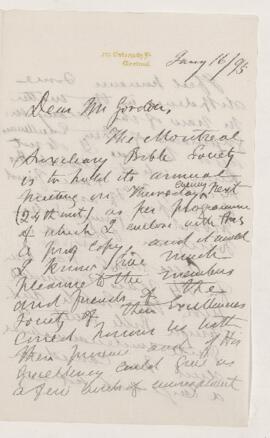 Montreal.
Jany 16/95
Dear Mr Gordon,
The Montreal
Auxiliary Bible Society
is to hold its annual
meeting on Thursday Evening next
(24th inst) as per programme
of which I enclose with this
a copy, and it would
I know give much
pleasure to the members
and friends of the
Society if their Excellencies
could honour us with
their presence and if His
Excellency could give us
a few words of